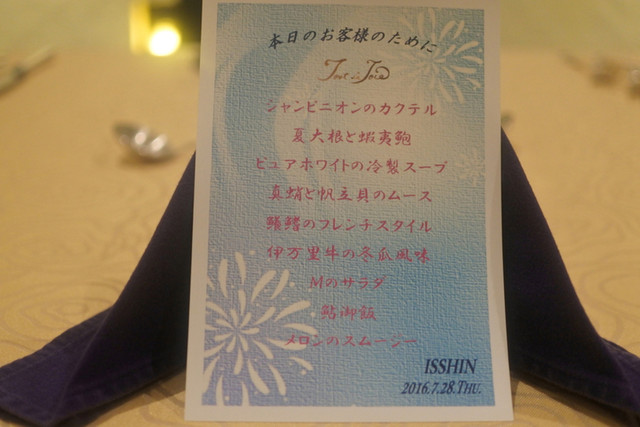 本日のお客様のために
シャンピニオンのカクテル
夏大根と蝦夷鮑
ピュアホワイトの冷製スープ
真蛸と帆立貝のムース
鱶鰭のフレンチスタイル
伊万里牛の冬瓜風味
Mのサラダ
鮎御飯
メロンのスムージー
ISSHIN
2016.7.28.THU.